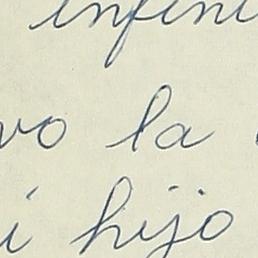 infini
vo la
i hijo